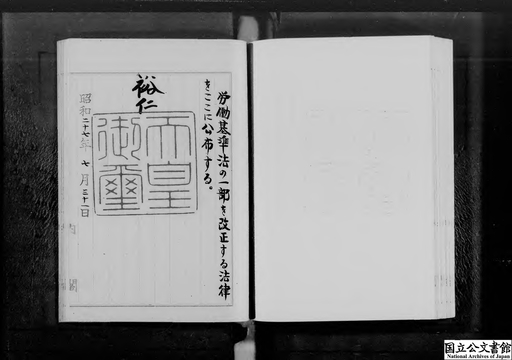 労働基準法の一部を改正する法律
をここに公布する。
裕仁
天皇
御璽
昭和二十七年七月三十一日
国立公文書館
National Archives of Japan